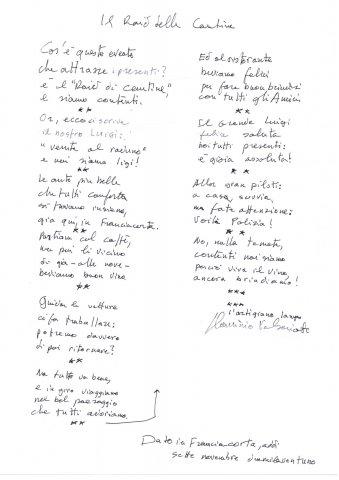 Il Raid delle Cantine
Cos'è questo evento
che attrasse i presenti?
è il "Raid di cantine,"
e siamo contenti.
**
Or, ecco ci scrive
il nostro Luigi:
"venite al raduno"
e noi siamo ligi!
**
Le auto più belle
che tutti conforta
si trovano insieme,
già qui, in Franciacorta.
**
Partiam col caffè,
ma poi lì vicino
di già - alle nove -
beviamo buon vino
**
Guidar le vetture
ci fa traballare:
potremo davvero
di poi ritornare?
*
Ma tutto va bene,
e in giro viaggiamo
nel bel paesaggio
che tutti adoriamo.
**
Ed al ristorante
beviamo felici
per fare buon brindisi
con tutti gli Amici
**
Il Grande Luigi
felice saluta
noi tutti presenti:
è gioia assoluta!
*
Allor gran piloti:
a casa, suvvia,
ma fate attenzione:
Verità Polizia!
*
No, nulla temete,
contenti noi siamo
perciò viva il vino,
ancora brindiamo!
***
***
l'artigiano, langa
Dato in Franciacorta, addì
sette novembre duemilaventuno